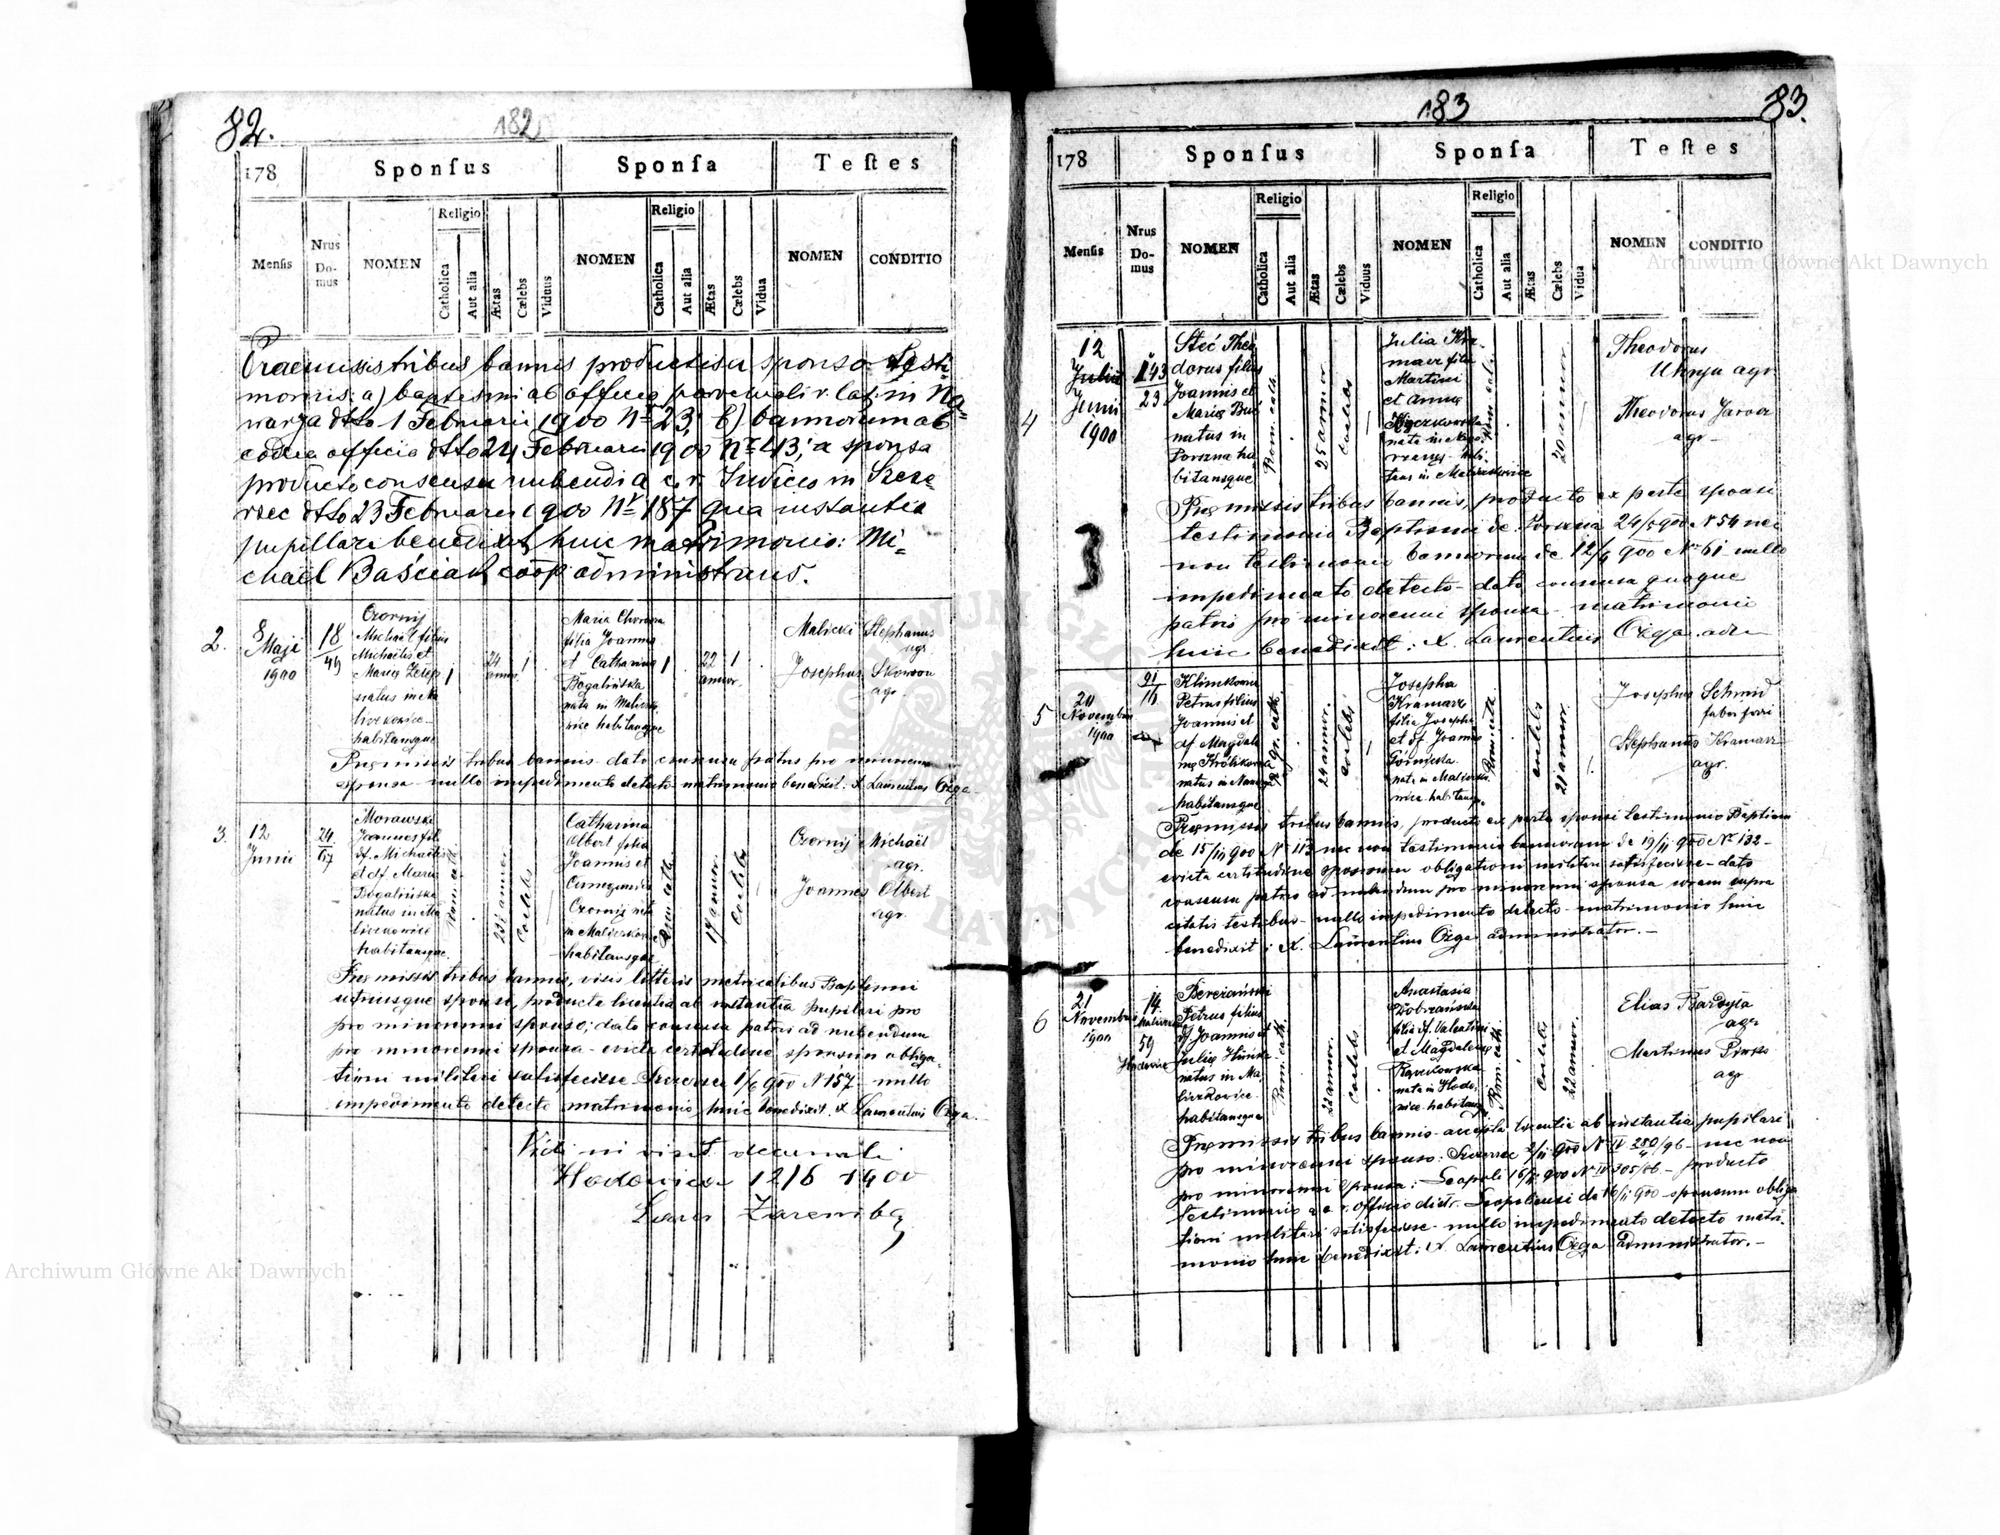 82.
182
178
Sponſus
Sponſa
Teſtes
Menſis
Nrus Do-mus
NOMEN
Religio
Catholica
Aut alia
Ætas
Cælebs
Viduus
NOMEN
Religio
Catholica
Aut alia
Ætas
Cælebs
Vidua
NOMEN
CONDITIO
Praemissis tribus bannis productis a sponso testi-
moniis: a) baptismi ab officio parochiali r. lat. in Na-
warya dtto 1 Februarii 1900 Nr 23; b) bannorum ab
eodem officio dtto 24 Februarii 1900 Nr 413; a sponsa
producto consensu nubendi a c. r. Iudicio in Szcze-
rzec dtto 23 Februarii 1900 Nr 187 qua instantia
pupillari benedixit huic matrimonio: Mi-
chaël Baściak coop administrans.
2.
8
Maji
1900
18
49
Czornij
Michaël filius
Michaëlis et
Mariæ
natus in Ma
liczkowice
habitansque
24
annor.
1
Maria
filia Joannis
et Catharina
Bogalińska
nata in Malicz
wice habitansque
1
22
annor.
1
Malicki Stephanus
agr.
Josephus Skowron
agr.
Præmissis tribus bannis dato consensu patris pro minorenni
sponsa nullo impedimento detecto matrimonio benedixit: X Laurentius Ożga
3.
12
Junii
24
Morawski
Joannes fil
df. Michaëlis
et df. Maria
Bogalińska
natus in Ma
liczkowice
habitansque
Rom. cat
23 annor
Coelebs
Catharina
Olbert filia
Joannis et
Cunegundis
Czornij nata
in Maliczkow
habitansque
Rom. cath.
19 annor.
Coelebs
Czornij Michaël
agr.
Joannes Olbert
agr.
Præmissis tribus bannis, visis litteris metricalibus Baptismi
utriusque sponsi, producta licentia ab instantia pupilari pro
pro minorenni sponso; dato consensu patris ad nubendum
pro minorenni sponsa - evicta certitudine, sponsum obliga
tioni militari satisfecisse Szczerzec 1/6 900 N 157 nullo
impedimento detecto matrimonio huic benedixit. X Laurentius Ożga
Vidi in visit. decanali
Hodowica 12/6 1900
Zaremba
83.
183
178
Sponſus
Sponſa
Teſtes
Menſis
Nrus Do-mus
NOMEN
Religio
Catholica
Aut alia
Ætas
Cælebs
Viduus
NOMEN
Religio
Catholica
Aut alia
Ætas
Cælebs
Vidua
NOMEN
CONDITIO
4
12
Julii
Junii
1900
143
23
Steć Theo
dorus filius
Joannis et
Mariæ
natus in
Porszna ha
bitansque
Rom. cath.
25 annor
coelebs
Julia Kra
marz filia
Martini
et Annæ
nata in Nago
rzany habi
tans in Maliczkowice
Rom. cat.
20 annor
Theodorus
Uhryn agr
Theodorus Jaroor
agr
Præmissis tribus bannis, producto ex parte sponsi
testimonio Baptismi de Porszna 24/5 900 N 54 nec
non testimonio bannorum de 12/6 900 Nr 61 nullo
impedimento detecto - dato consensu quoque
patris pro minorenni sponsa - matrimonio
huic benedixit: X. Laurentius Ożga adm
5
20
Novembris
1900
91
16
Klimkowski
Petrus filius
Joannis et
df Magdale
næ Królikowska
natus in Nawarya
habitansque
gr. cath.
24 annor.
coelebs
Josepha
Kramarz
filia Josephi
et df Joannæ
Górniska
nata in Maliczko
wice habitansq.
Rom. cath.
coelebs
21 annor.
Josephus Schmid
faber ferri
Stephanus Kramarz
agr.
Præmissis tribus bannis, producto ex parte sponsi testimonio Baptismi
de 15/11 900 N 113 nec non testimonio bannorum de 19/11 900 Nr 132 -
evicta certitudine sponsum obligationi militari satisfecisse - dato
consensu patris ad nubendum pro minorenni sponsa coram supra
citatis testibus - nullo impedimento detecto - matrimonio huic
benedixit: X. Laurentius Ożga administrator. -
6
21
Novembris
1900
14
Malicz
59
Hodowice
Bereżański
Petrus filius
df Joannis et
Juliæ
natus in Ma
liczkowice
habitansque
Rom. cath.
22 annor.
coelebs
Anastasia
Dobrzańska
filia df. Valentini
et Magdalenæ
nata in Hodo
wice habitansq
Rom. cath.
Coelebs
22 annor.
Elias Bardyla
agr
Martinus
agr
Præmissis tribus bannis - accepta licentia ab instantia pupilari
pro minorenni sponso: Szczerzec 2/11 900 N IV 280/96 - nec non
pro minorenni sponsa: Leopoli 16/11 900 N IV 305/06 - producto
testimonio a c. r. officio distr. Leopoliensi de 16/11 900 - sponsum obliga
tioni militari satisfecisse - nullo impedimento detecto matri-
monio huic benedixit: X. Laurentius Ożga administrator. -
Archiwum Główne Akt Dawnych
Archiwum Główne Akt Dawnych